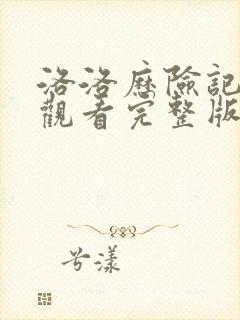 洛洛历險記
觀看完整版
兮漾